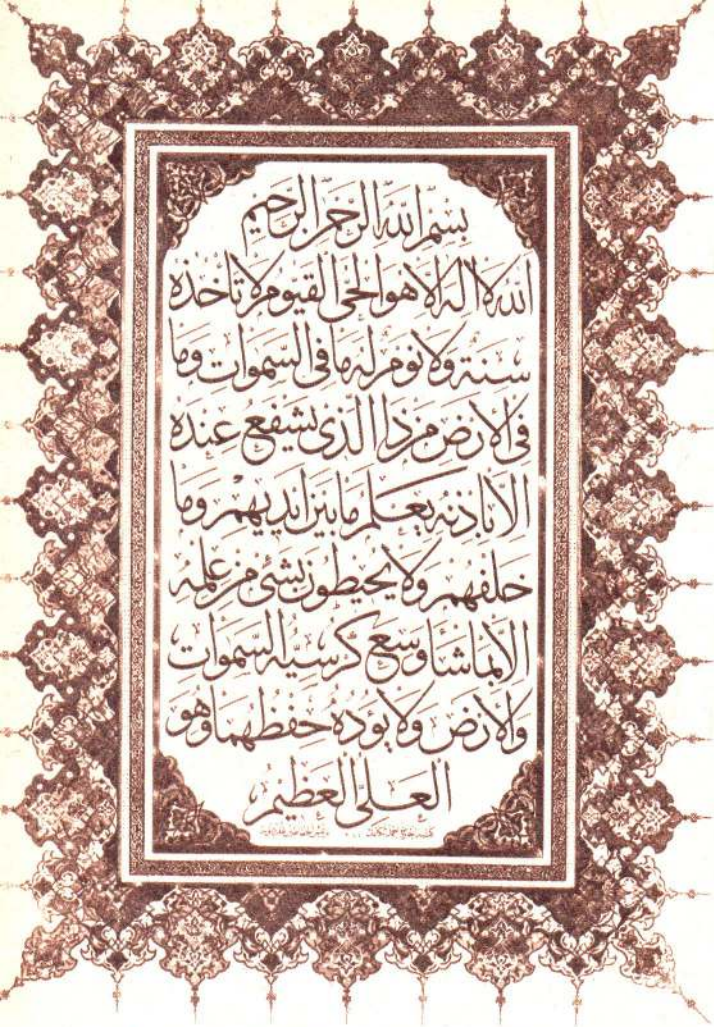 بسم الله الرحمن الرحيم
الله لا اله الا هو الحي القيوم لا تأخذه
سنة ولا نوم له ما في السموات وما
في الأرض من ذا الذي يشفع عنده
الا باذنه يعلم ما بين ايديهم وما
خلفهم ولا يحيطون بشئ من علمه
الا بما شاء وسع كرسيه السموات
والأرض ولا يؤده حفظهما وهو
العلي العظيم